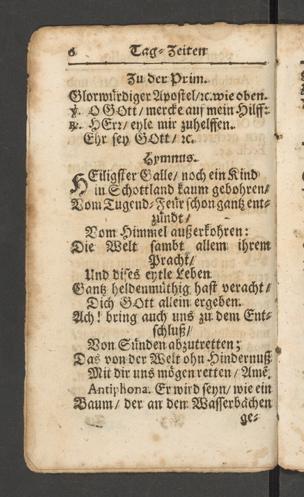 6 Tag-Zeiten
Zu der Prim.
Glorwürdiger Apostel/ꝛc. wie oben.
℣. O GOtt / mercke auf mein Hilff:
℟. HErr / eyle mir zuhelffen.
Ehr sey GOtt / ꝛc.
Hymnus.
HEiligster Galle / noch ein Kind
in Schottland kaum gebohren /
Vom Tugend-Feur schon gantz ent-
zündt /
Vom Himmel außerkohren:
Die Welt sambt allem ihrem
Pracht /
Und dises eytle Leben
Gantz heldenmüthig hast veracht /
Dich GOtt allein ergeben.
Ach! bring auch uns zu dem Ent-
schluß /
Von Sünden abzutretten;
Das von der Welt ohn Hindernuß
Mit dir uns mögen retten / Amē.
Antiphona. Er wird seyn / wie ein
Baum / der an den Wasserbächen
ge-